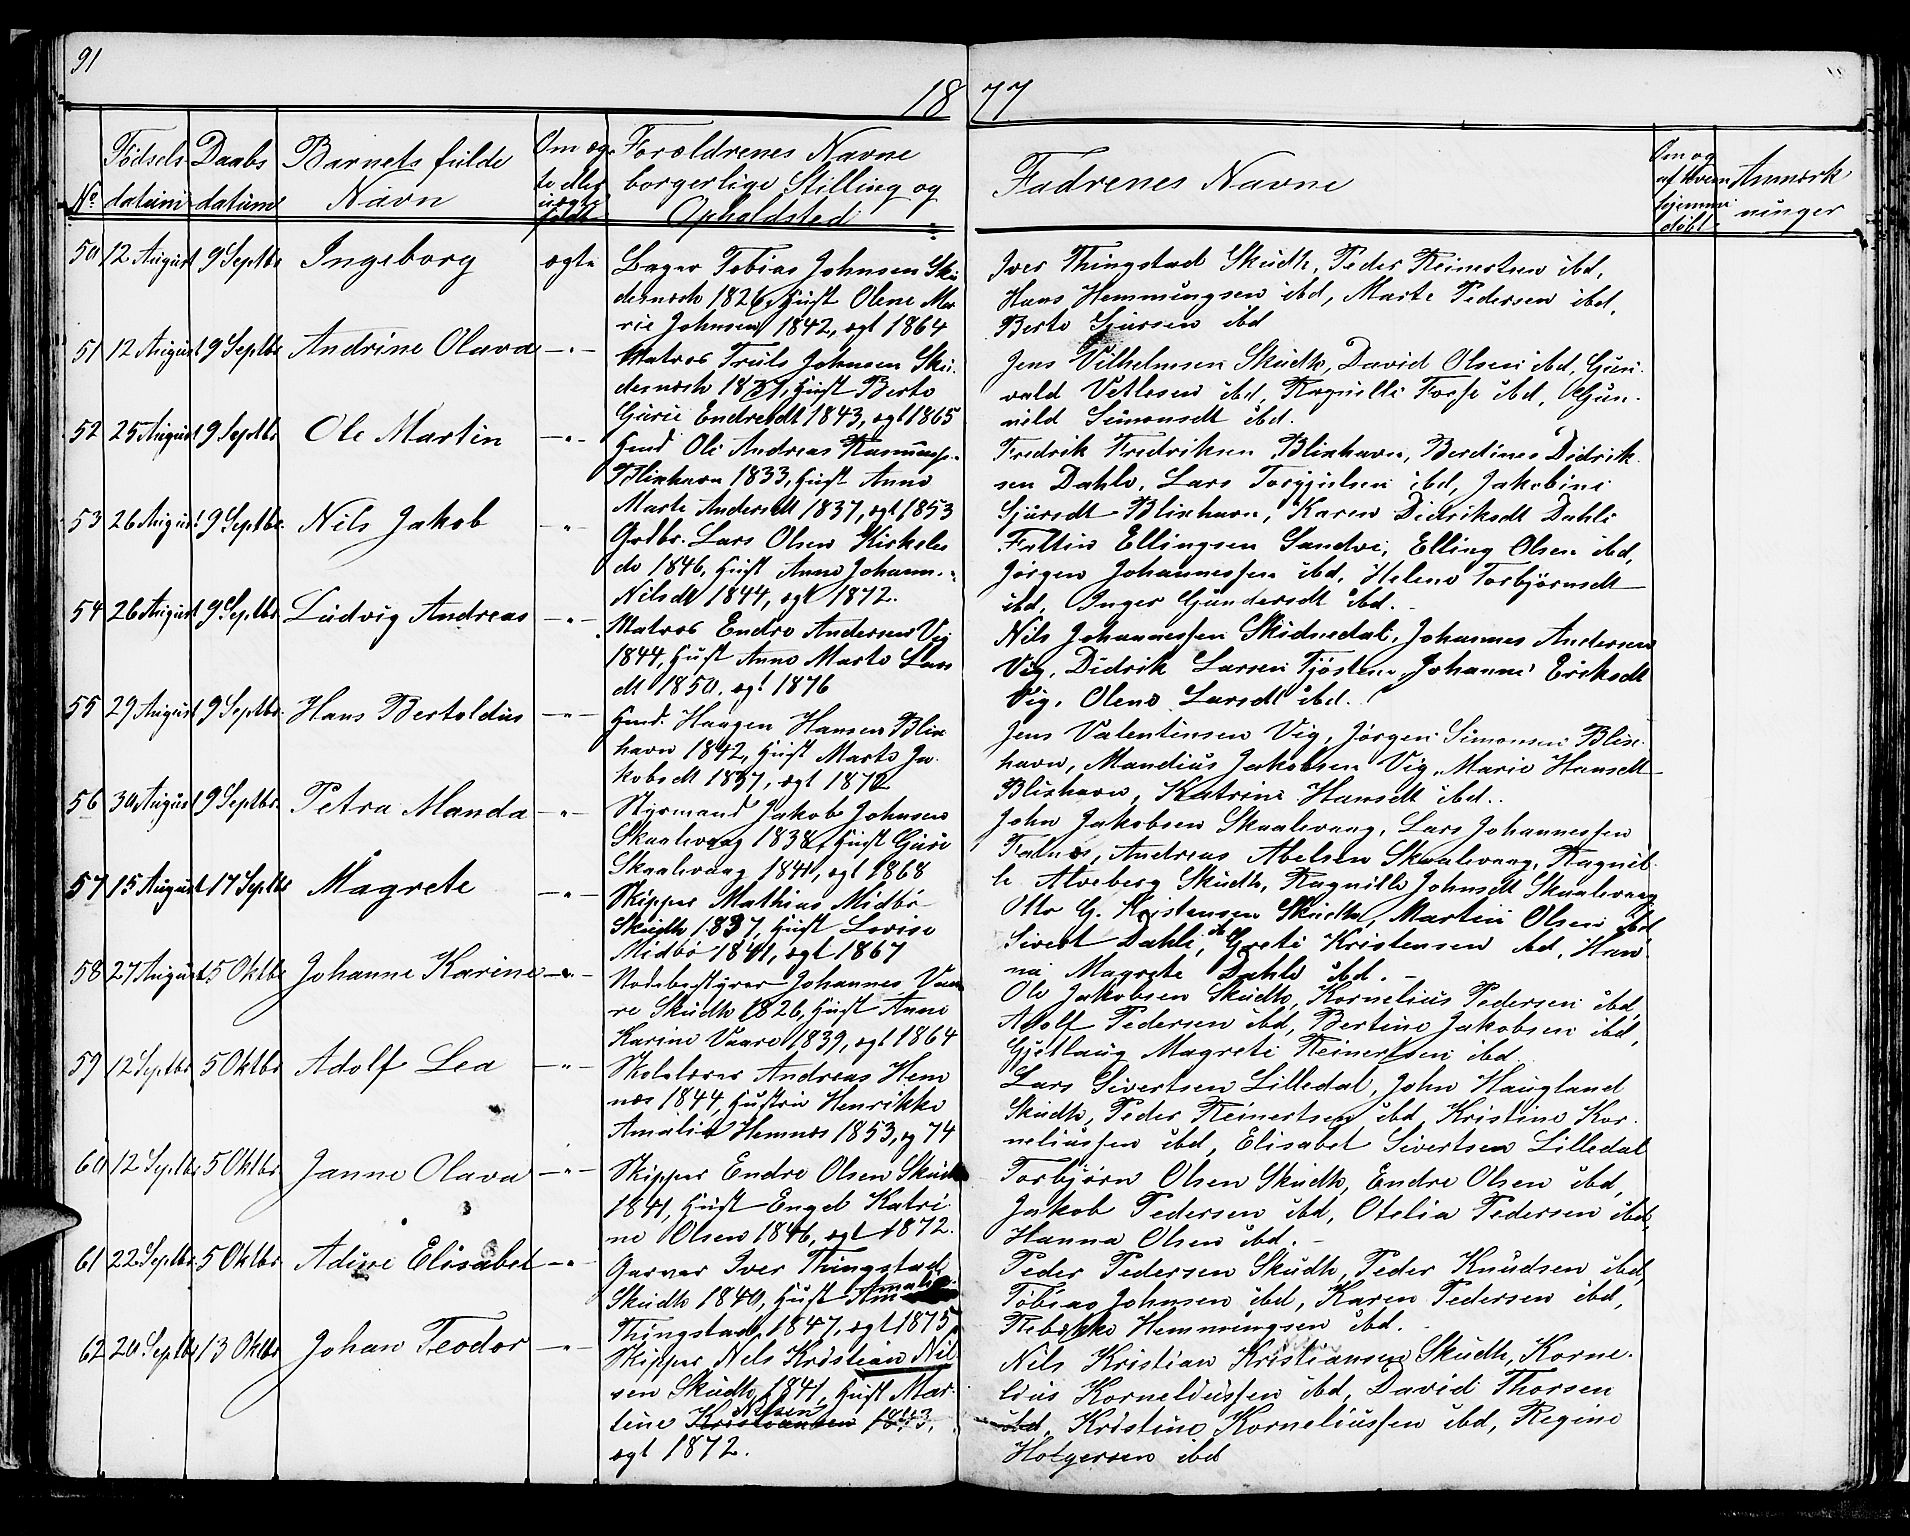 91
1877
No
Fødsels datum
Daabs datum
Barnets fulde Navn
Om ægte eller uægte født
Forældrenes Navne borgerlige Stilling og Opholdsted
Fadrenes Navne
Om og af hvem hjemmedøbt
Anmærkninger
50 12 August 9 Septbr Ingeborg ægte
Bager Tobias Johnsen Sku
desnæsh 1826, Hust Olene Ma
rie Johnsen 1842, ægt 1864
Iver Thingstad Skudh, Peder Reinertsen ibd,
Hans Hemmingsen ibd, Marte Pedersen ibd,
Berte Sjursen ibd
51 12 August 9 Septbr Andrine Olava -"-
Matros Truls Johnsen Sku
desnæsh Hust Berte
Gurie Endresdt 1843, ægt 1865
Jens Vilhelmsen Skudh, David Olsen ibd, Gun
vald Vetlesen ibd, Ragnille ibd, Gun
nild Simonsdt ibd.
52 25 August 9 Septbr Ole Martin -"-
Gmd Ole Andreas Rasmuss.
Blixhavn 1833, Hust Anne
Marte Andersdt 1837, ægt 1853
Fredrik Fredriksen Blixhavn, Berdines Didrik
sen Dahle, Lars Torgjelsen ibd, Jakobine
Sjursdt Blixhavn, Karen Didriksdt Dahle
53 26 August 9 Septbr Nils Jakob "
Grdbr. Lars Olsen Kirkele
de 1846, Hust Anne Johann.
Nilsdt 1844, ægt 1872.
Faltin Ellingsen Sandve, Elling Olsen ibd,
Jørgen Johannessen ibd, Helene Torbjørnsdt
ibd, Inger Gundersdt ibd.
54 26 August 9 Septbr Ludvig Andreas -"-
Matros Endre Andersen Vig
1844, Hust Anne Marte Lars
dt 1850, ægt 1876
Nils Johannessen Skudnedal, Johannes Andersen
Vig, Didrik Larsen Tjøsten, Johanne Eriksdt
Vig, Olene Larsdt ibd.
55 29 August 9 Septbr. Hans Bertoldus -"-
Gmd. Haagen Hansen Blix
havn 1842, Hust Marte Ja
kobsdt 1837, ægt 1872
Jens Valentinsen Vig, Jørgen Simonsen Blix
havn, Mandius Jakobsen Vig, Marie Hansdt
Blixhavn, Katrine Hansdt ibd.
56 30 August 9 Septbr. Petra Manda -"-
Styrmand Jakob Johnsen
Skaalevaag 1838, Hust Guri
Skaalevaag 1841, ægt 1868
John Jakobsen Skaalevaag, Lars Johannessen
Falnes, Andreas Abelsen Skaalevaag, Ragnil
le Alveberg Skudh, Ragnille Johnsdt Skaalevaag
57 15 August 17 Septbr Magrete -"-
Skipper Mathias Midbø
Skudh 1837, Hust Lovise
Midbø 1841, ægt 1867
Otto G. Kristensen Skudh, Martin Olsen ibd
Sivert Dahle, Grete Kristensen ibd, Han
na Magrete Dahle ibd.
58 27 August 5 Oktbr Johanne Karine -"-
Nodebestyrer Johannes Vaa
re Skudh 1826, Hust Anne
Karine Vaare 1839, ægt 1864
Ole Jakobsen Skudh, Kornelius Pedersen ibd,
Adolf Pedersen ibd, Bertine Jakobsen ibd,
Gjetlaug Magrete Reinertsen ibd.
59 12 Septbr 5 Oktbr Adolf Lea -"-
Skolelærer Andreas Hem
næs 1844, Hustru Henrikke
Amalia Hemnæs 1853, æg 74
Lars Sivertsen Lilledal, John Haugland
Skudh, Peder Reinertsen ibd, Kristine Kor
neliussen ibd, Elisabet Sivertsen Lilledal
60 12 Septbr 5 Oktbr Janne Olava -"-
Skipper Endre Olsen Skudh
1841, Hust Engel Katri
ne Olsen 1846, ægt 1872.
Torbjørn Olsen Skudh, Endre Olsen ibd,
Jakob Pedersen ibd, Otelia Pedersen ibd,
Hanna Olsen ibd.
61 22 Septbr 5 Oktbr Elisabet -"-
Garver Iver Thingstad
Skudh 1840, Hust Amalie
Thingstad 1847, ægt 1875
Peder Pedersen Skudh, Peder Knudsen ibd,
Tobias Johnsen ibd, Karen Pedersen ibd,
Rebekke Hemmingsen ibd.
62 20 Septbr 13 Oktbr Johan Teodor -"-
Skipper Nels Kristian Nil
sen Skudh 1841, Hust Mar
tine Kristiansen Nilsen 1843,
ægt 1872.
Nils Kristian Kristiansen Skudh, Korne
lius Korneliussen ibd, David Thorsen
ibd, Kristine Korneliussen ibd, Regine
Holgersen ibd